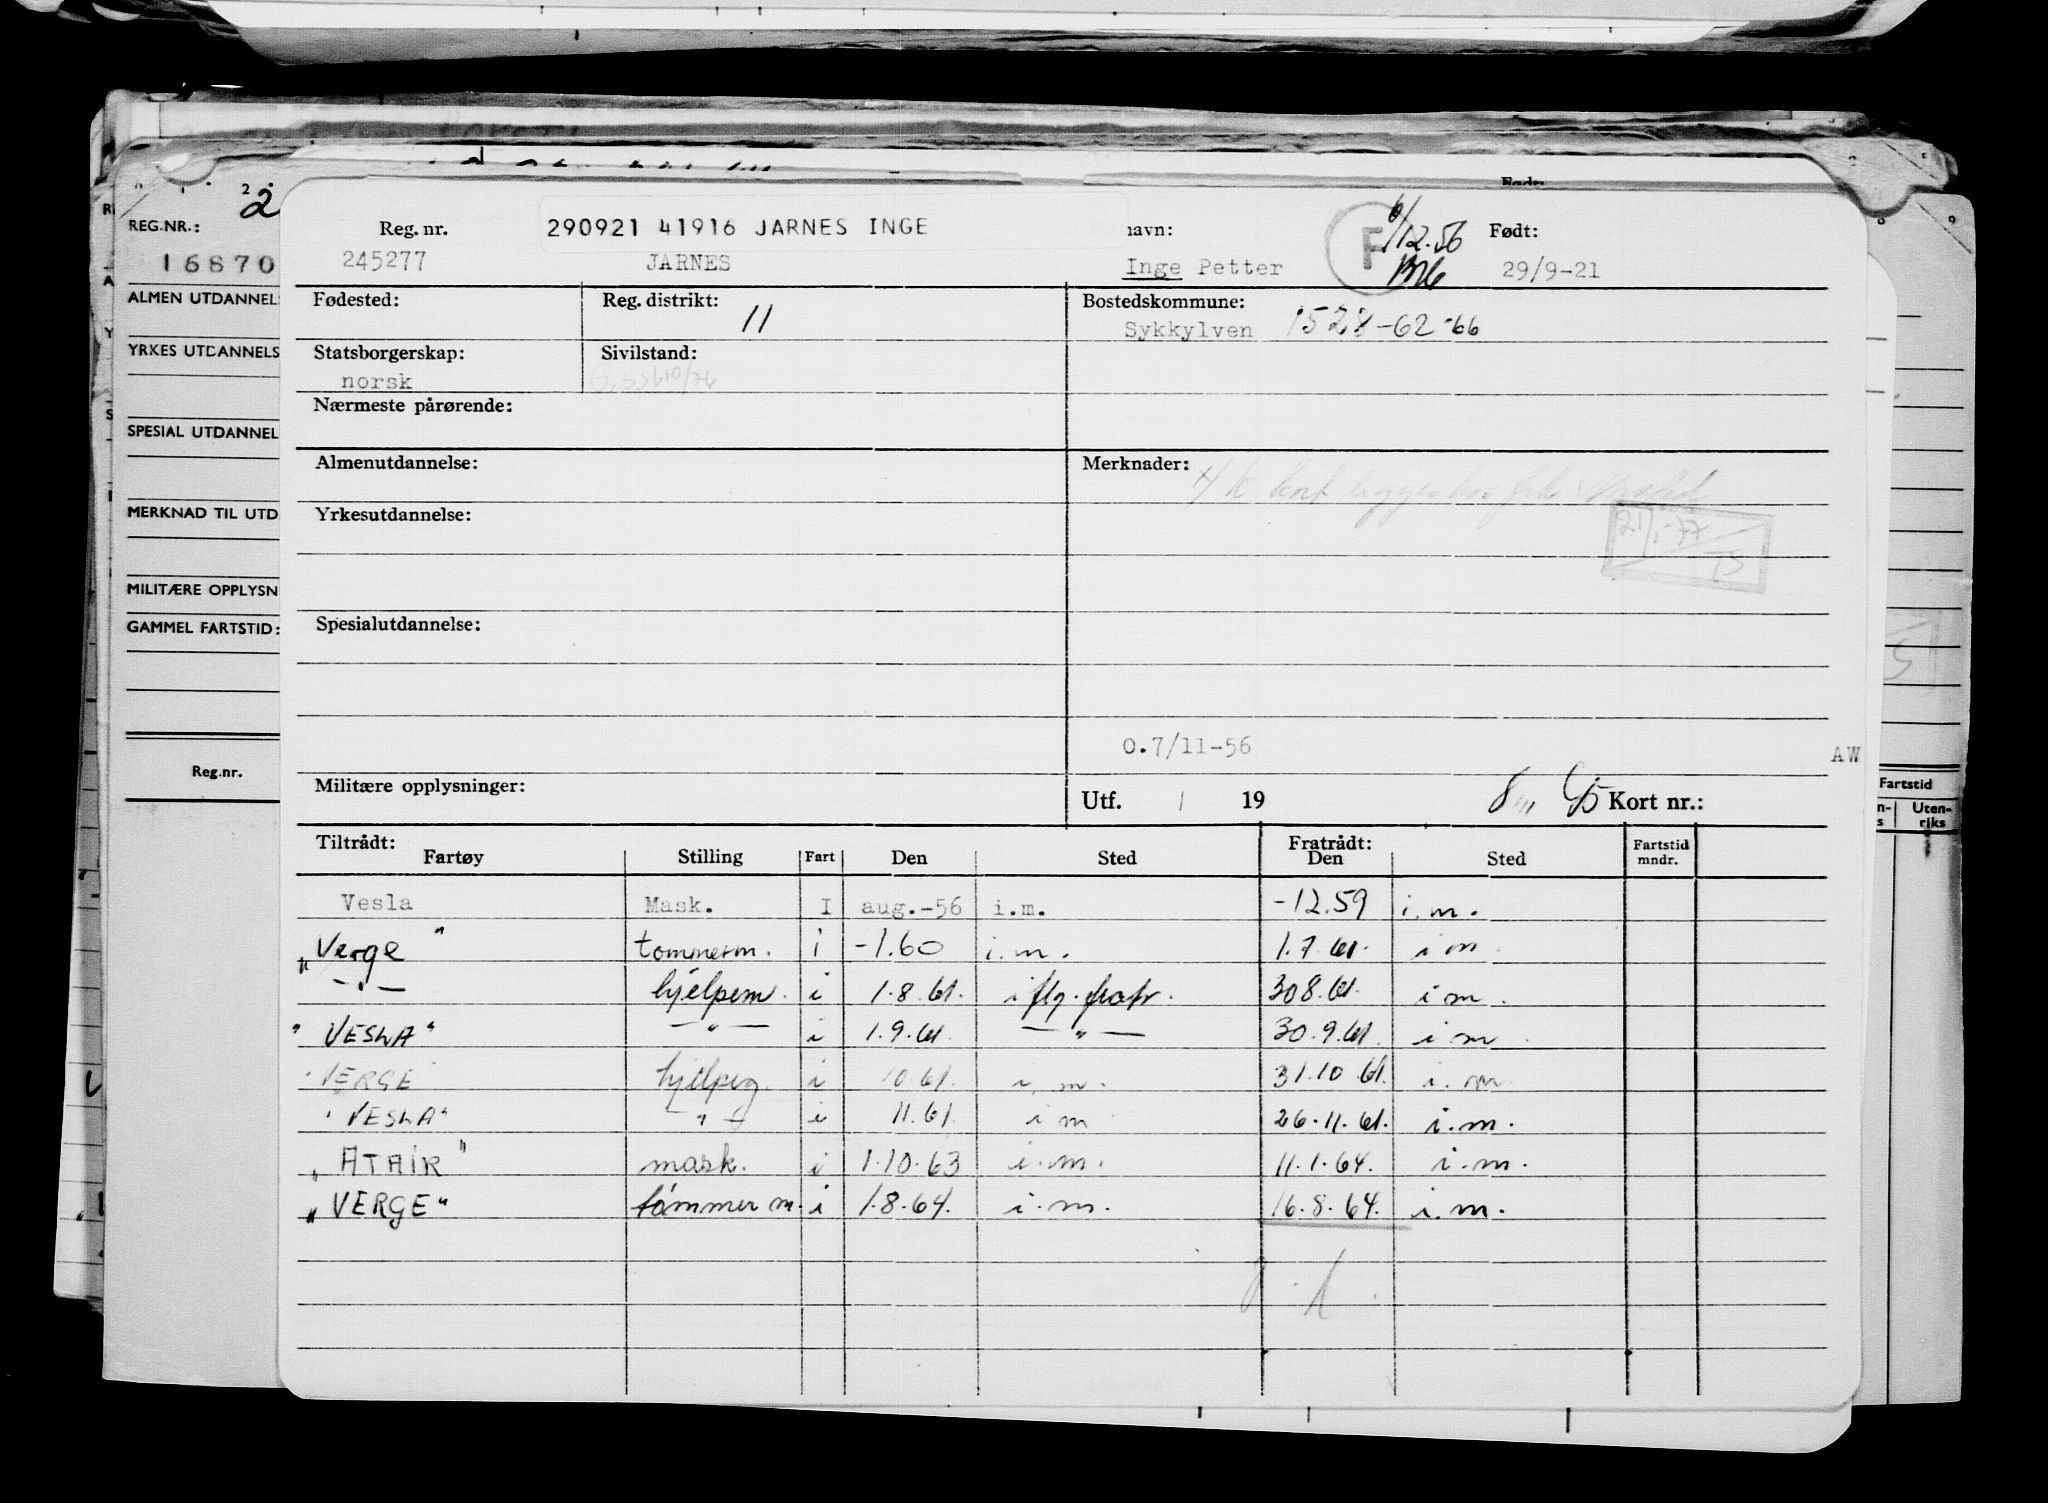 REG.NR.: 2
16870
ALMEN UTDANNEL
YRKES UTDANNELS
SPESIAL UTDANNEL
MERKNAD TIL UTD
MILITÆRE OPPLYSN
GAMMEL FARTSTID:
Reg.nr.
Reg. nr. 290921 41916 JARNES INGE navn: F 6/12.56 Født:
245277 JARNES Inge Petter 29/9-21
Fødested: Reg. distrikt: 11 Bostedskommune:
Sykkylven 1528-62-66
Statsborgerskap: Sivilstand:
norsk
Nærmeste pårørende:
Almenutdannelse: Merknader:
Yrkesutdannelse:
21/1-77
TS
Spesialutdannelse:
O.7/11-56 AW
Militære opplysninger: Utf. / 19 Kort nr.:
Fartstid
Uten-
riks
Tiltrådt: Fratrådt: Fartstid
Fartøy Stilling Fart Den Sted Den Sted mndr.
Vesla Mask. I aug.-56 i.m. -12.59 i.m.
"Verge" tømmerm. i -1.60 i.m. 1.7.61. i m
-"- hjelpem. i 1.8.61. i flg. fratr. 30 8.61. i m.
"VESLA" -"- i 1.9.61. -"- 30.9.61. i m.
"VERGE hjelpeg. i 10.61. i.m. 31.10.61. i.m.
"VESLA" -"- i 11.61. i m 26.11.61. i.m.
"ATAIR" mask. i 1.10.63 i.m. 11.1.64. i.m.
"VERGE" tømmerm. i 1.8.64. i.m. 16.8.64. i.m.